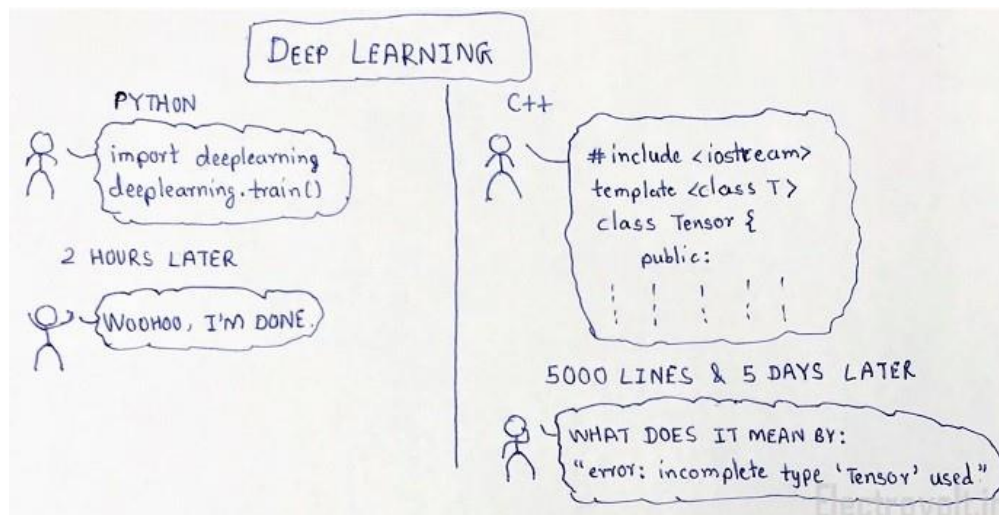 DEEP LEARNING
PYTHON
import deeplearning
deeplearning.train()
2 HOURS LATER
WOOHOO, I'M DONE.
C++
#include <iostream>
template <class T>
class Tensor {
public:
5000 LINES & 5 DAYS LATER
WHAT DOES IT MEAN BY:
"error: incomplete type 'Tensor' used"
Electrovolt.i